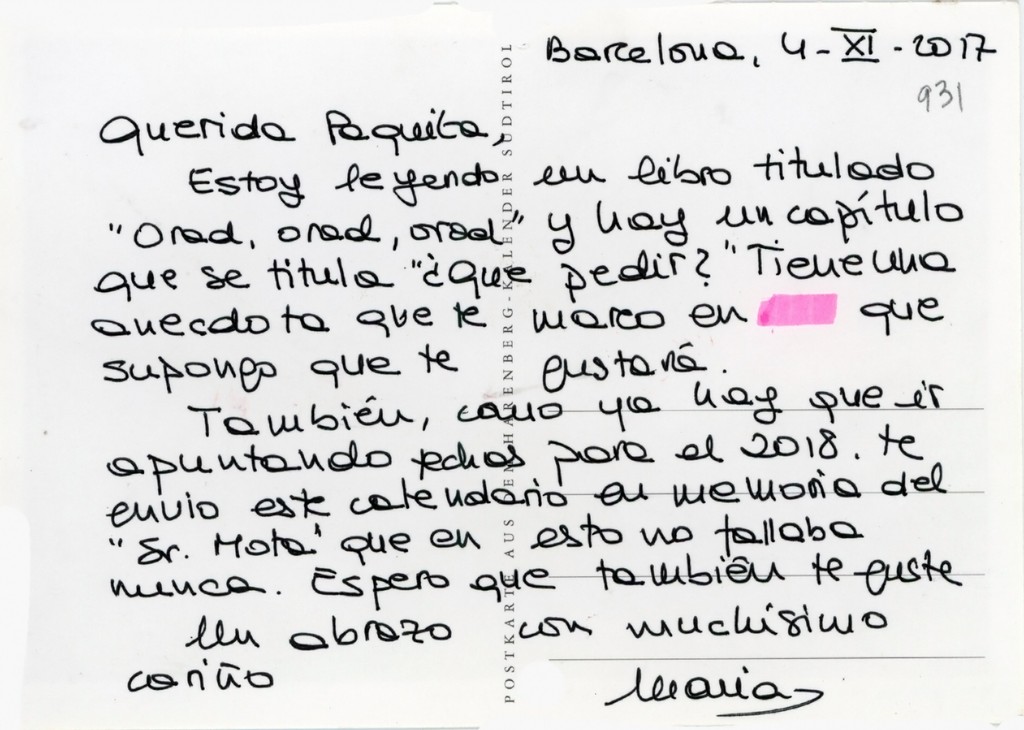 Barcelona, 4-XI-2017
931
Querida Paquita,
Estoy leyendo un libro titulado
"Orad, orad, orad" y hay un capítulo
que se titula "¿Que pedir?" Tiene una
anecdota que te marco en que
supongo que te gustará.
También, como ya hay que ir
apuntando fechas para el 2018. te
envio este calendario en memoria del
"Sr. Mota" que en esto no fallaba
nunca. Espero que también te guste
Un abrazo con muchísimo
cariño
Maria
POSTKARTE AUS HARENBERG-KALENDER SÜDTIROL